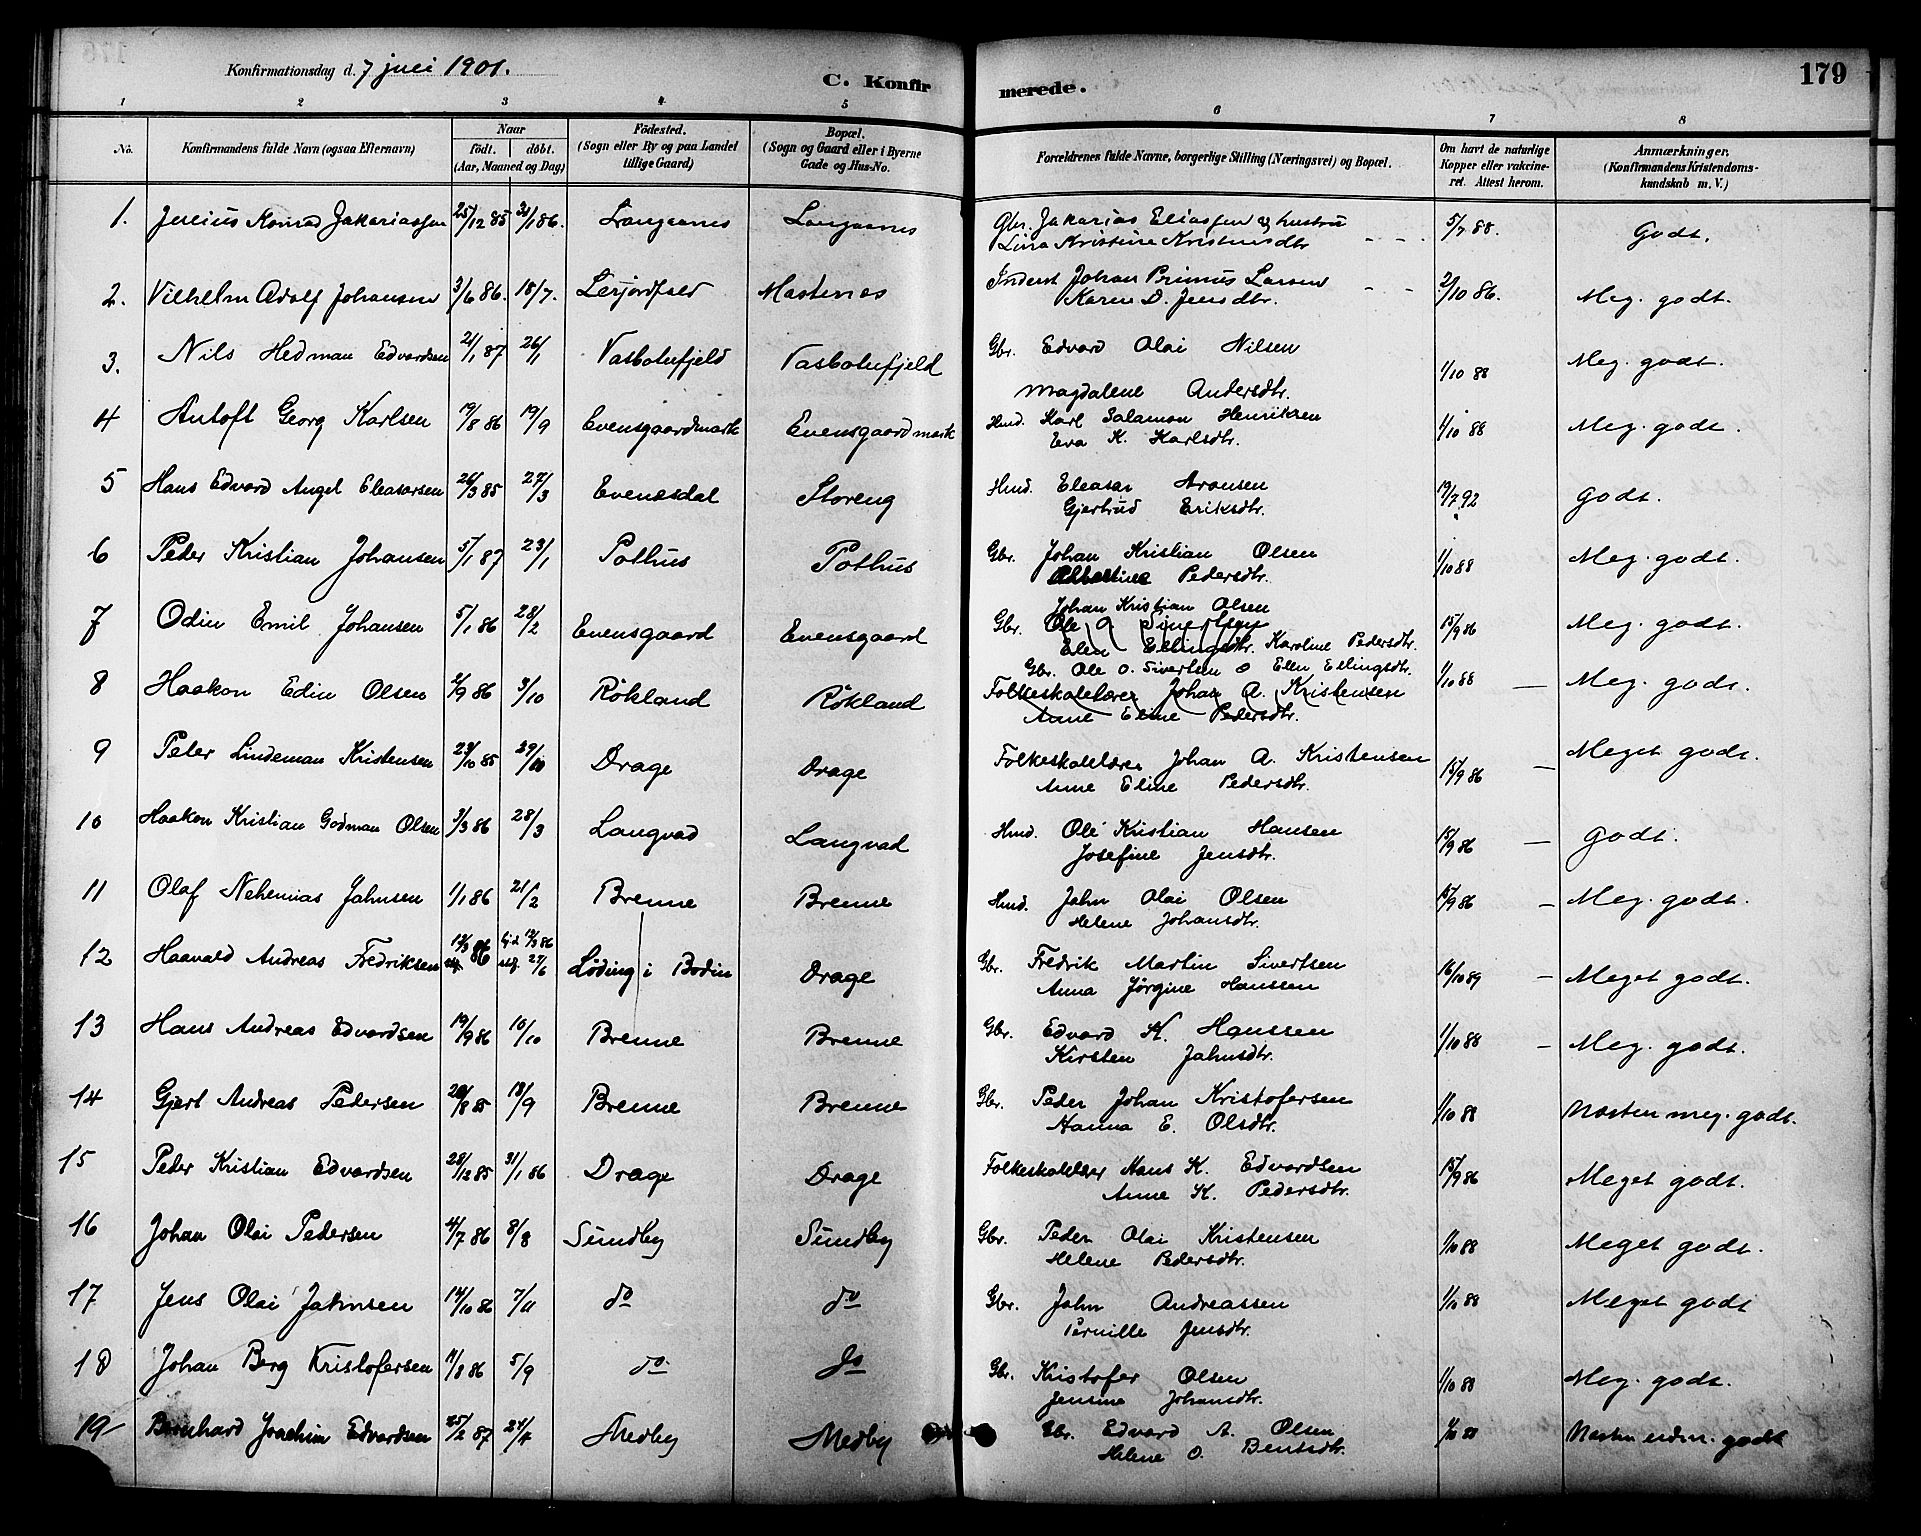 Konfirmationsdag d. 7 juli 1901.
C. Konfirmerede.
179
1 2 3 4 5 6 7 8
No.
Konfirmandens fulde Navn (ogsaa Efternavn)
Naar
födt. döbt.
(Aar, Maaned og Dag)
Födested.
(Sogn eller By og paa Landet
tillige Gaard)
Bopæl.
(Sogn og Gaard eller i Byerne
Gade og Hus-No.
Forældrenes fulde Navne, borgerlige Stilling (Næringsvei) og Bopæl.
Om havt de naturlige
Kopper eller vakcine-
ret. Attest herom.
Anmærkninger.
(Konfirmandens Kristendoms-
kundskab m. V.)
1. Julius Konrad Jakariassen 25/12 85 31/1 86. Langaanes Langaanes Gbr. Jakarias Eliassen og hustru 5/7 88. Godt.
Lina Kristine Kristensdtr
2. Vilhelm Adolf Johansen 3/6 86. 18/7. Lerjordfald Mastenes Inderst Johan Primus Larsen 2/10 86. Meg. godt.
Karen D. Jensdtr.
3. Nils Hedman Edvardsen 21/1 87 26/1 Vasbotnfjeld Vasbotnfjeld Gbr. Edvard Olai Nilsen 1/10 88 Meg. godt.
Magdalene Andersdtr.
4 Antoft Georg Karlsen 19/8 86 19/9 Evensgaardmark Evensgaardmark Hmd. Karl Salamon Henriksen 1/10 88 Meg. godt.
Eva K. Karlsdtr.
5 Hans Edvard Angel Eleasarsen 26/3 85 27/3 Evenesdal Storeng Hmd. Eleasar Aronsen 19/7 92 Godt.
Gjertrud Eriksdtr.
6 Peder Kristian Johansen 5/1 87 23/1 Pothus Pothus Gbr. Johan Kristian Olsen 1/10 88 Meg. godt.
Albertine Pedersdtr.
7 Odin Emil Johansen 5/1 86 28/2 Evensgaard Evensgaard Johan Kristian Olsen
Gbr. Ole O Sivertsen 15/9 86 Meg. godt.
Elen Ellingsdtr. Karoline Pedersdtr.
8 Haakon Edin Olsen 2/9 86 3/10 Røkland Røkland Gbr. Ole O. Sivertsen o Ellen Ellingsdtr. 1/10 88 — Meg. godt.
Folkeskolelærer Johan A. Kristensen
Anne Eline Pedersdtr.
9 Peter Lindeman Kristensen 23/10 85 29/10 Drage Drage Folkeskolelærer Johan A. Kristensen 15/9 86 — Meget godt.
Anne Eline Pedersdtr.
10 Haakon Kristian Godman Olsen 3/3 86 28/3 Langvad Langvad Hmd. Ole Kristian Hansen 15/9 86 — Godt.
Josefine Jensdtr.
11 Olaf Nehemias Jahnsen 1/1 86 21/2 Brenne Brenne Hmd. Jahn Olai Olsen 15/9 86 — Meg. godt.
Helene Johansdtr.
12 Haavald Andreas Fredriksen 12/3 86 hjd 12/3 86 stf. 27/6 Løding i Bodin Drage Gbr. Fredrik Martin Sivertsen 16/10 89 — Meget godt.
Anna Jørgine Hanssen
13 Hans Andreas Edvardsen 19/9 86 10/10 Brenne Brenne Gbr. Edvard K. Hanssen 1/10 88 — Meg. godt.
Kirsten Jahnsdtr.
14 Gjert Andreas Pedersen 20/8 85 13/9 Brenne Brenne Gbr. Peder Johan Kristofersen 1/10 88 Næsten meg. godt.
Hanna E. Olsdtr.
15 Peder Kristian Edvardsen 28/12 85 31/1 86 Drage Drage Folkeskolelærer Hans K. Edvardsen 15/9 86 Meget godt.
Anne K. Pedersdtr.
16 Johan Olai Pedersen 4/7 86 8/8 Sundby Sundby Gbr. Peder Olai Kristensen 1/10 88 Meget godt.
Helene Pedersdtr.
17 Jens Olai Jahnsen 14/10 86 7/11 do do Gbr. John Andreassen 1/10 88 Meget godt
Pernille Jensdtr.
18 Johan Berg Kristofersen 11/8 86 5/9 do do Gbr. Kristofer Olsen 1/10 88 Meg. godt.
Jensine Johansdtr.
19 Bernhard Joachim Edvardsen 25/2 87 24/4 Medby Medby Gbr. Edvard A. Olsen 1/10 88 Næsten udm. godt
Helene O. Bentsdtr.